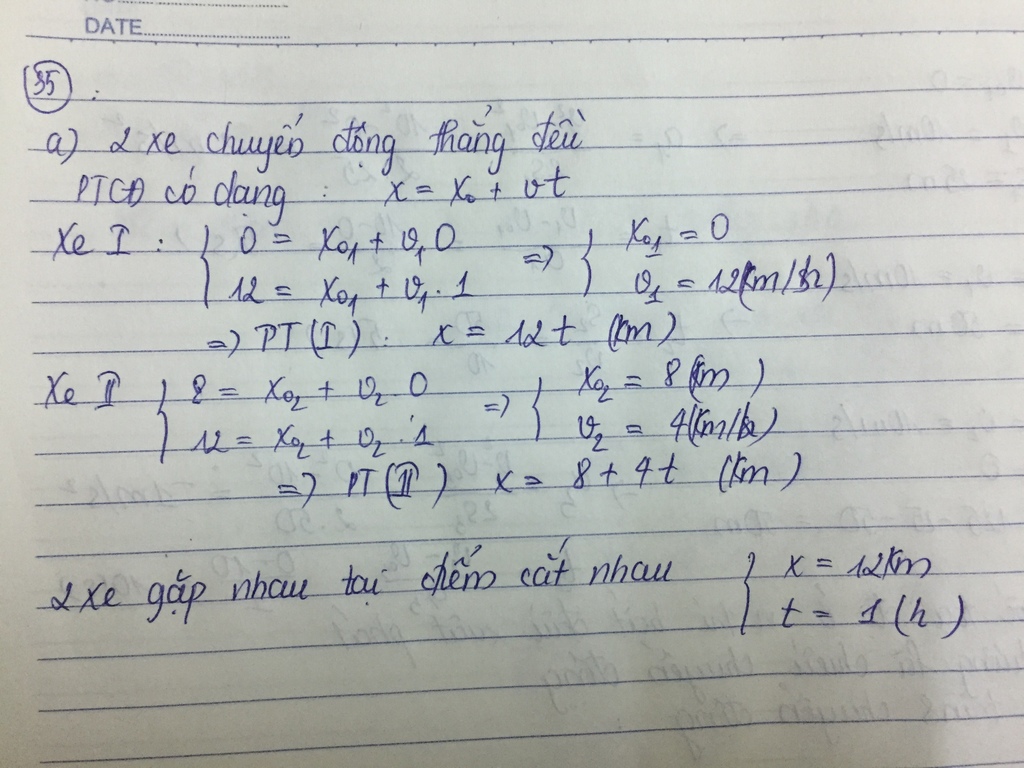 DATE
35 :
a) 2 xe chuyển động thẳng đều
PTCĐ có dạng : x = x₀ + vt
Xe I : { 0 = x₀₁ + v₁0 => { x₀₁ = 0
{ 12 = x₀₁ + v₁.1 { v₁ = 12(km/h)
=) PT(I) : x = 12t (km)
Xe II { 8 = x₀₂ + v₂ 0 => { x₀₂ = 8(km)
{ 12 = x₀₂ + v₂.1 { v₂ = 4(km/h)
=) PT(II) x = 8 + 4t (km)
2 xe gặp nhau tại điểm cắt nhau { x = 12km
{ t = 1(h)